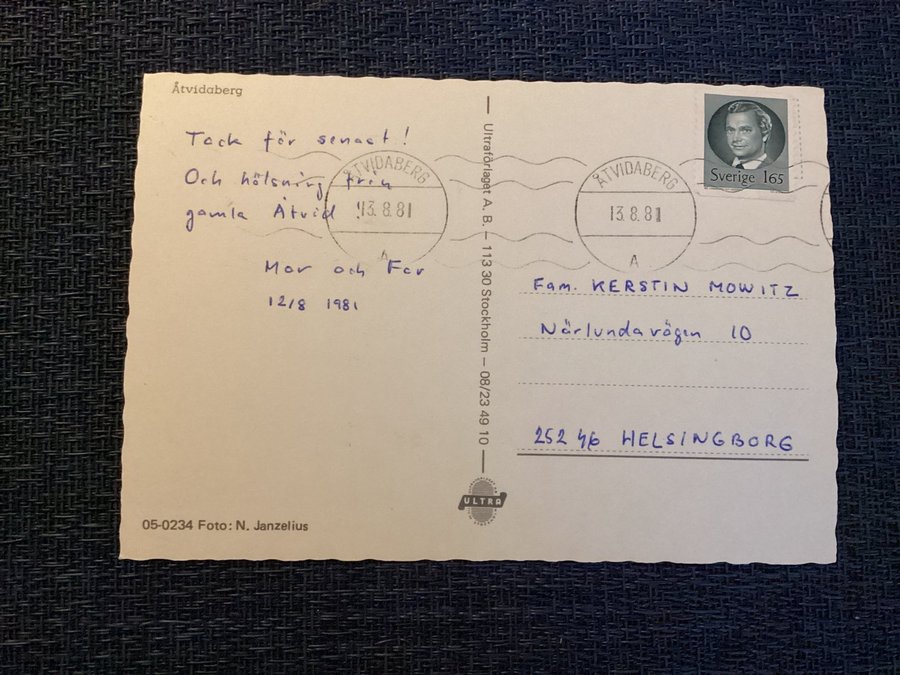 Åtvidaberg
Tack för senast!
Och hälsning från
gamla Åtvid!
Mor och Far
12/8 1981
05-0234 Foto: N. Janzelius
Ultraförlaget A. B. – 113 30 Stockholm – 08/23 49 10
ULTRA
ÅTVIDABERG
13.8.81
A
ÅTVIDABERG
13.8.81
A
Sverige 165
Fam. KERSTIN MOWITZ
Närlundavägen 10
252 46 HELSINGBORG